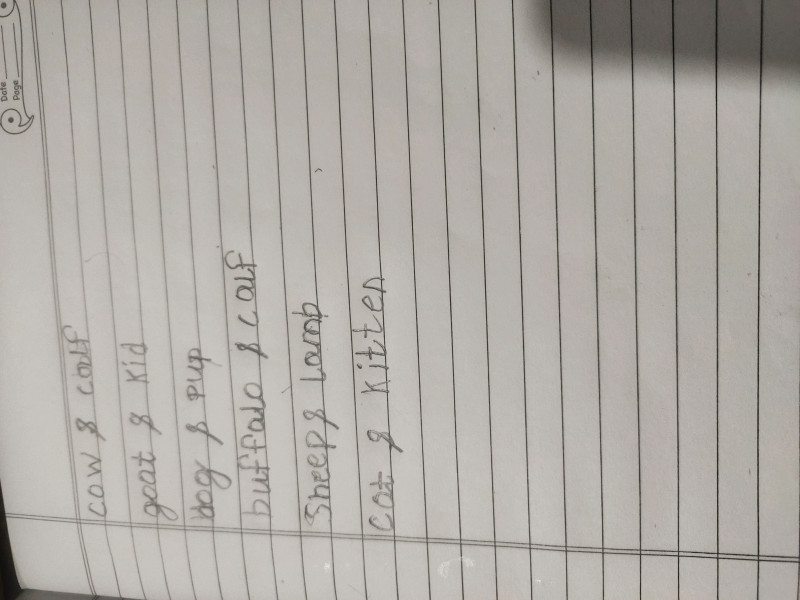 Date
Page
cow & calf
goat & kid
dog & pup
buffalo & calf
Sheep & Lamb
cat & kitten